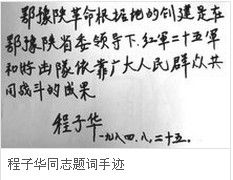 鄂豫陕革命根据地的创建是在
鄂豫陕省委领导下.红军二十五军
和游击队依靠广大人民群众共
同战斗的成果
程子华
一九八四.八.二十五.
程子华同志题词手迹